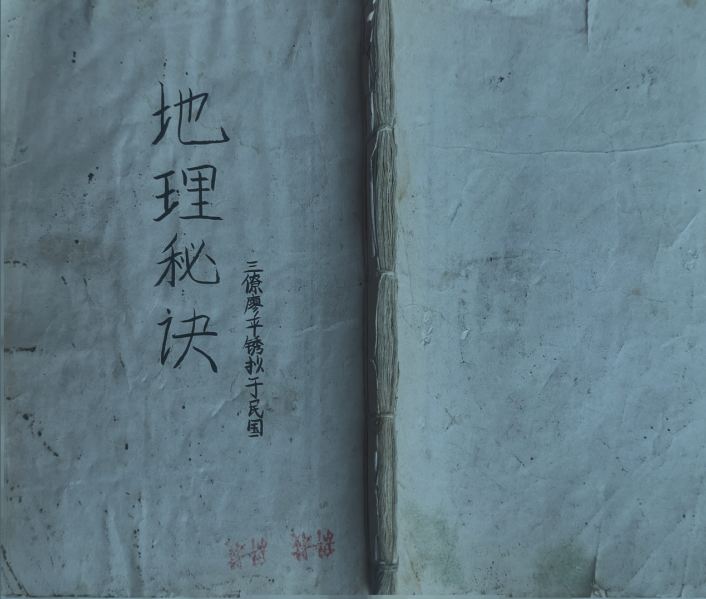 地理秘诀
三僚廖平锈拟于民国